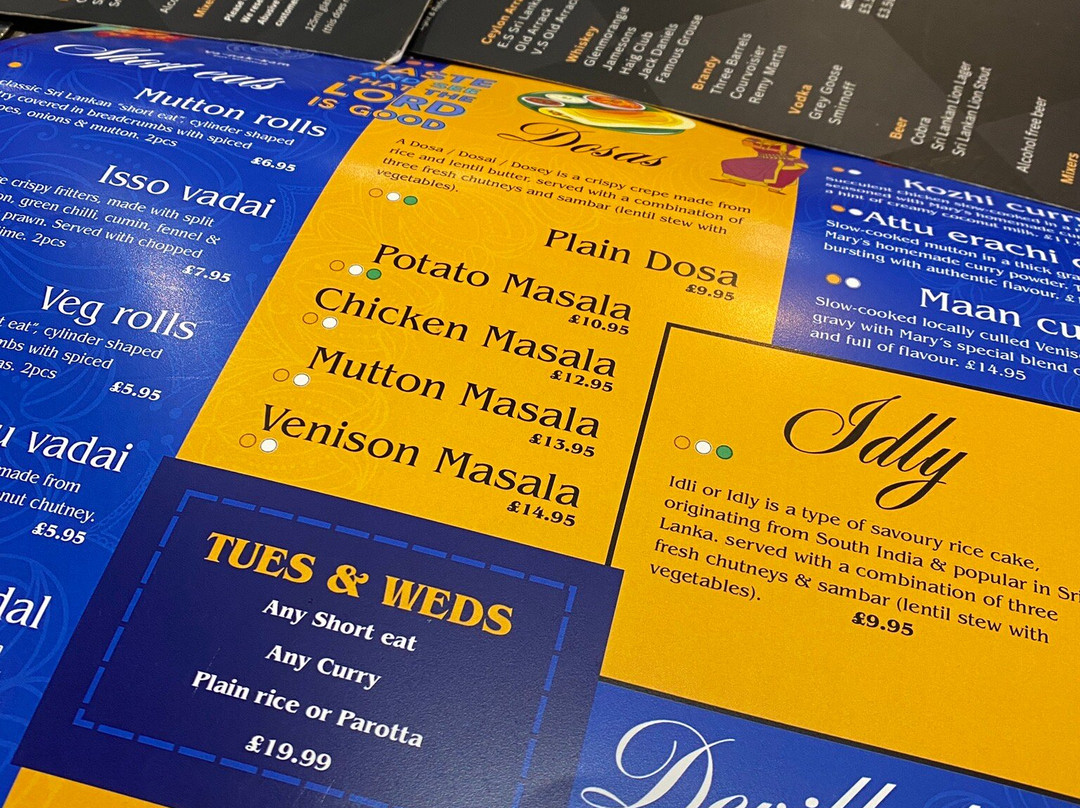 Short eats
Mutton rolls
classic Sri Lankan "short eat", cylinder shaped
covered in breadcrumbs with spiced
onions & mutton. 2pcs
£6.95
Isso vadai
crispy fritters, made with split
green chilli, cumin, fennel &
prawn. Served with chopped
2pcs
£7.95
Veg rolls
eat", cylinder shaped
with spiced
2pcs
£5.95
vadai
made from
chutney.
£5.95
TASTE
AND SEE
THAT THE
LORD
IS GOOD
Dosas
A Dosa / Dosai / Dosey is a crispy crepe made from
rice and lentil butter, served with a combination of
three fresh chutneys and sambar (lentil stew with
vegetables).
Plain Dosa
£9.95
Potato Masala
£10.95
Chicken Masala
£12.95
Mutton Masala
£13.95
Venison Masala
£14.95
TUES & WEDS
Any Short eat
Any Curry
Plain rice or Parotta
£19.99
Ceylon
E.S Sri
Old Arrack
V.S Old
Whiskey
Glenmorangie
Jamesons
Haig Club
Jack Daniels
Famous Grouse
Brandy
Three Barrels
Courvoisier
Remy Martin
Vodka
Grey Goose
Smirnoff
Beer
Cobra
Sri Lankan Lion Lager
Sri Lankan Lion Stout
Alcohol free beer
Mixers
Kozhi
Attu erachi
Slow-cooked mutton in a thick
Mary's homemade curry powder.
bursting with authentic flavour.
Maan
Slow-cooked locally culled
gravy with Mary's special blend
and full of flavour. £14.95
Idly
Idli or Idly is a type of savoury rice cake,
originating from South India & popular in Sri
Lanka. served with a combination of three
fresh chutneys & sambar (lentil stew with
vegetables).
£9.95